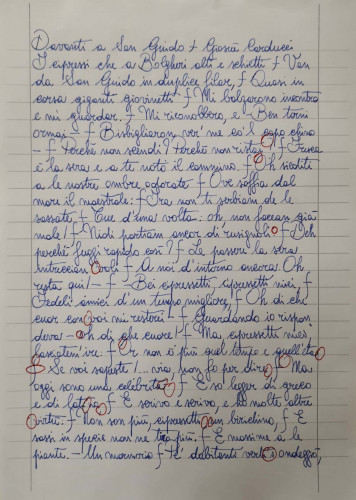 Davanti a San Guido + Giosuè Carducci
I cipressi che a Bolgheri alti e schietti f Van
da San Guido in duplice filar, f Quasi in
corsa giganti giovinetti f Mi balzarono incontro
e mi guardar. f Mi riconobbero, e - Ben torni
omai - f Bisbigliaron ver' me co'l capo chino
- f Perché non scendi? Perché non ristai? f Fresca
è la sera e a te noto il cammino. f Oh siediti
a le nostre ombre odorate f Ove soffia dal
mare il maestrale: f Ira non ti serbiam de le
sassate f Tue d'una volta: oh, non facean già
male! f Nidi portiam ancor di rusignoli: f Deh
perché fuggi rapido così? f Le passere la sera
intreccian voli f A noi d'intorno ancora. Oh
resta qui! - f - Bei cipressetti, cipressetti miei, f
Fedeli amici d'un tempo migliore, f Oh di che
cuor con voi mi resterei - f Guardando io rispon
deva - Oh di che cuore! f Ma, cipressetti miei,
lasciatemi ire: f Or non è più quel tempo e quell'età.
f Se voi sapeste!... via, non fo per dire, f Ma
oggi sono una celebrità. f E so legger di greco
e di latino, f E scrivo e scrivo, e ho molte altre
virtù: f Non son più, cipressetti, un birichino, f E
sassi in specie non ne tiro più. f E massime a le
piante. - Un mormorio f Pe' dubitanti vertici ondeggiò,